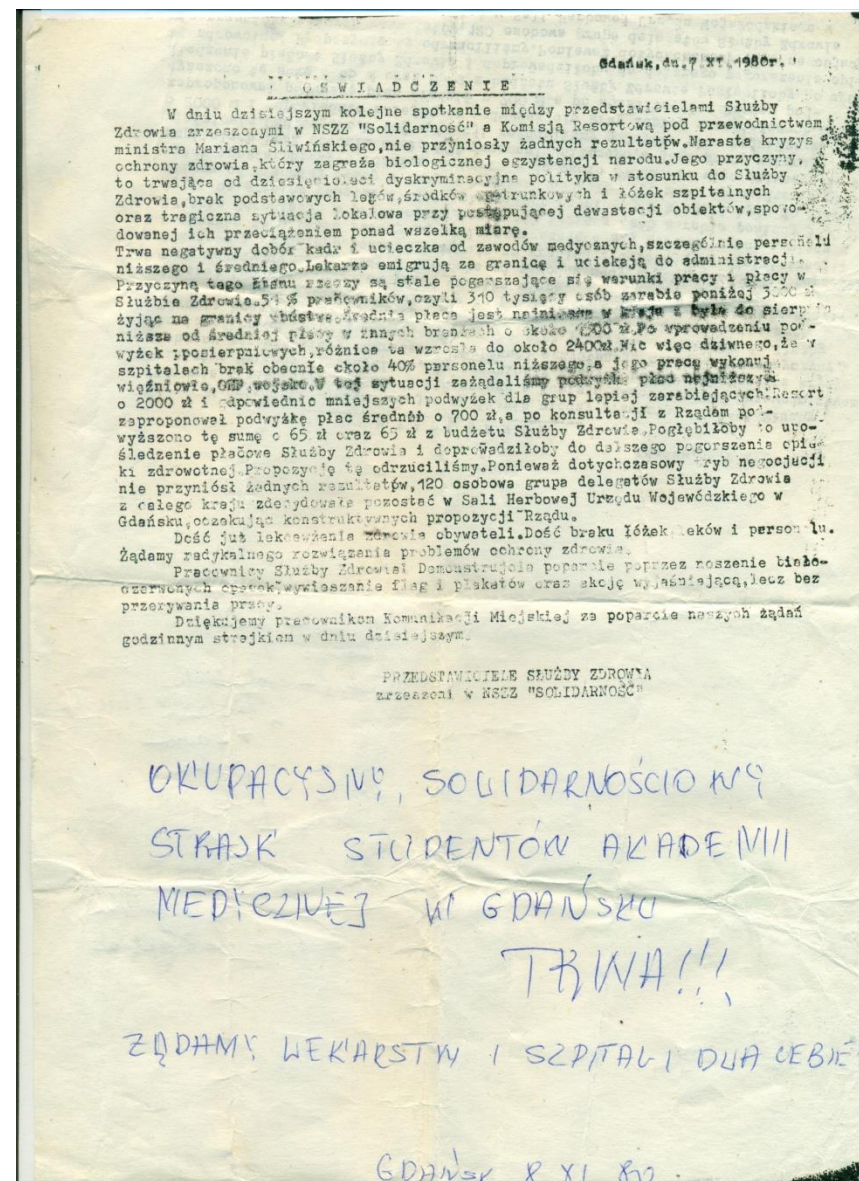 Gdańsk,dn.7 XI.1980r.
OŚWIADCZENIE
W dniu dzisiejszym kolejne spotkanie między przedstawicielami Służby
Zdrowia zrzeszonymi w NSZZ "Solidarność" a Komisją Resortową pod przewodnictwem
ministra Mariana Śliwińskiego,nie przyniosły żadnych rezultatów.Narasta kryzys
ochrony zdrowia,który zagraża biologicznej egzystencji narodu.Jego przyczyny,
to trwająca od dziesięcioleci dyskryminacyjna polityka w stosunku do Służby
Zdrowia,brak podstawowych leków,środków opatrunkowych i łóżek szpitalnych
oraz tragiczna sytuacja lokalowa przy postępującej dewastacji obiektów,spowo-
dowanej ich przeciążeniem ponad wszelką miarę.
Trwa negatywny dobór kadr i ucieczka od zawodów medycznych,szczególnie personelu
niższego i średniego.Lekarze emigrują za granicę i uciekają do administracji.
Przyczyną tego stanu rzeczy są stale pogarszające się warunki pracy i płacy w
Służbie Zdrowia.54 % pracowników,czyli 310 tysięcy osób zarabia poniżej 3000 zł
żyjąc na granicy ubóstwa.Średnia płaca jest najniższa w kraju i była do sierpnia
niższa od średniej płacy w innych branżach o około zł.Po wprowadzeniu pod-
wyżek posierpniowych,różnica ta wzrosła do około 2400zł.Nic więc dziwnego,że w
szpitalach brak obecnie około 40% personelu niższego,a jego pracę wykonują
więźniowie,OHP,wojsko.W tej sytuacji zażądaliśmy podwyżki płac najniższych
o 2000 zł i odpowiednio mniejszych podwyżek dla grup lepiej zarabiających.Resort
zaproponował podwyżkę płac średnio o 700 zł,a po konsultacji z Rządem pod-
wyższono tę sumę o 65 zł oraz 65 zł z budżetu Służby Zdrowia.Pogłębiłoby to upo-
śledzenie płacowe Służby Zdrowia i doprowadziłoby do dalszego pogorszenia opie-
ki zdrowotnej.Propozycję tę odrzuciliśmy.Ponieważ dotychczasowy tryb negocjacji
nie przyniósł żadnych rezultatów,120 osobowa grupa delegatów Służby Zdrowia
z całego kraju zdecydowała pozostać w Sali Herbowej Urzędu Wojewódzkiego w
Gdańsku,oczekując konstruktywnych propozycji Rządu.
Dość już lekceważenia zdrowia obywateli.Dość braku łóżek leków i personelu.
Żądamy radykalnego rozwiązania problemów ochrony zdrowia.
Pracownicy Służby Zdrowia! Demonstrujcie poparcie poprzez noszenie biało-
czerwonych opasek,wywieszanie flag i plakatów oraz akcję wyjaśniającą,lecz bez
przerywania pracy.
Dziękujemy pracownikom Komunikacji Miejskiej za poparcie naszych żądań
godzinnym strajkiem w dniu dzisiejszym.
PRZEDSTAWICIELE SŁUŻBY ZDROWIA
zrzeszeni w NSZZ "SOLIDARNOŚĆ"
OKUPACYJNY, SOLIDARNOŚCIOWY
STRAJK STUDENTÓW AKADEMII
MEDYCZNEJ W GDAŃSKU
TRWA!!!
ŻĄDAMY LEKARSTW I SZPITALI DLA CIEBIE
GDAŃSK 8 XI 80.